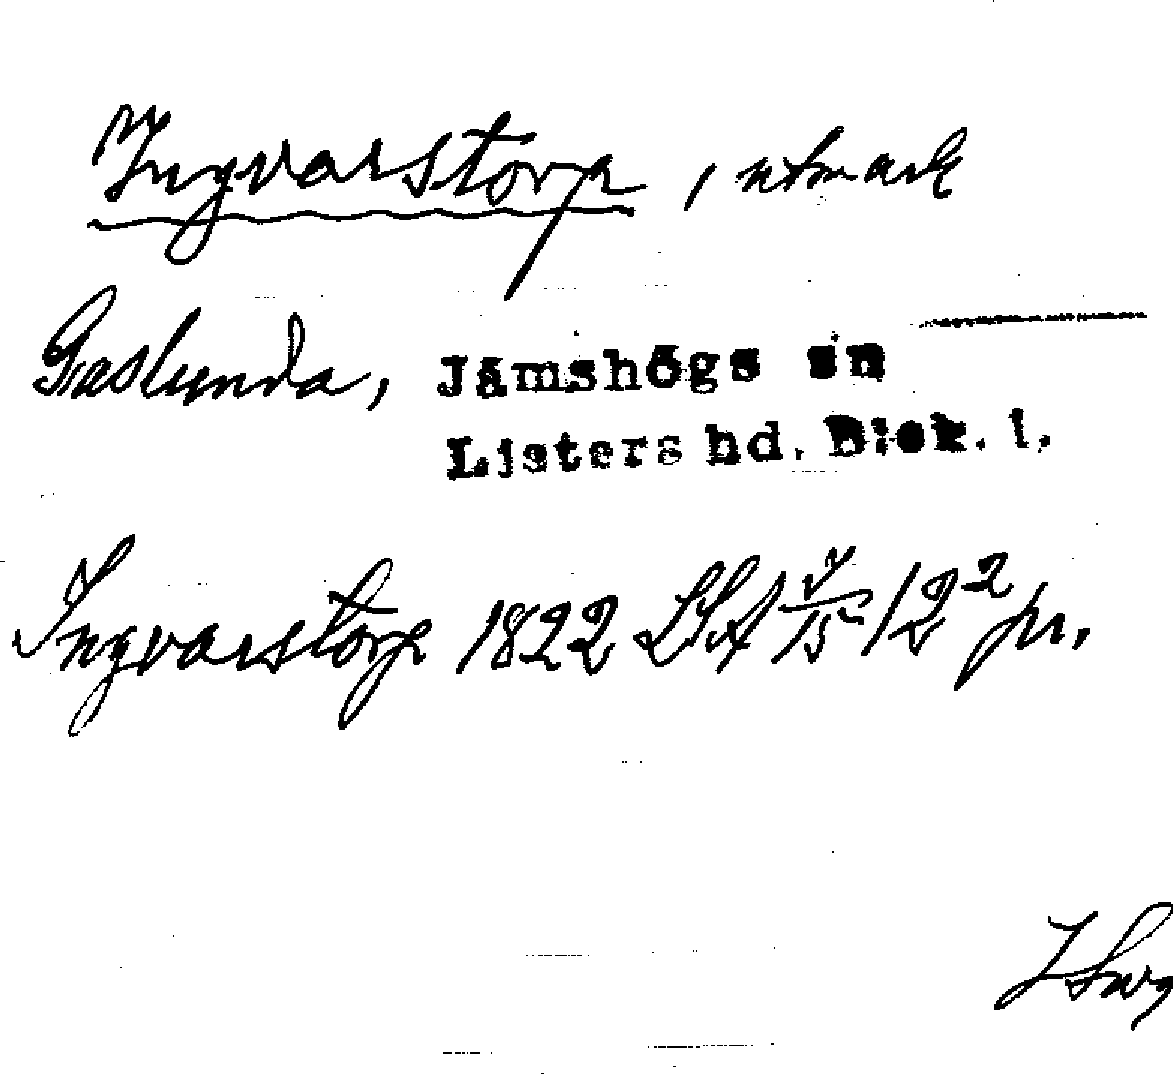 Ingvarstorp, utmark
Gaslunda, Jämshögs sn
Listers hd. Blek. l.
Ingvarstorp 1822 LSA 12² pr.